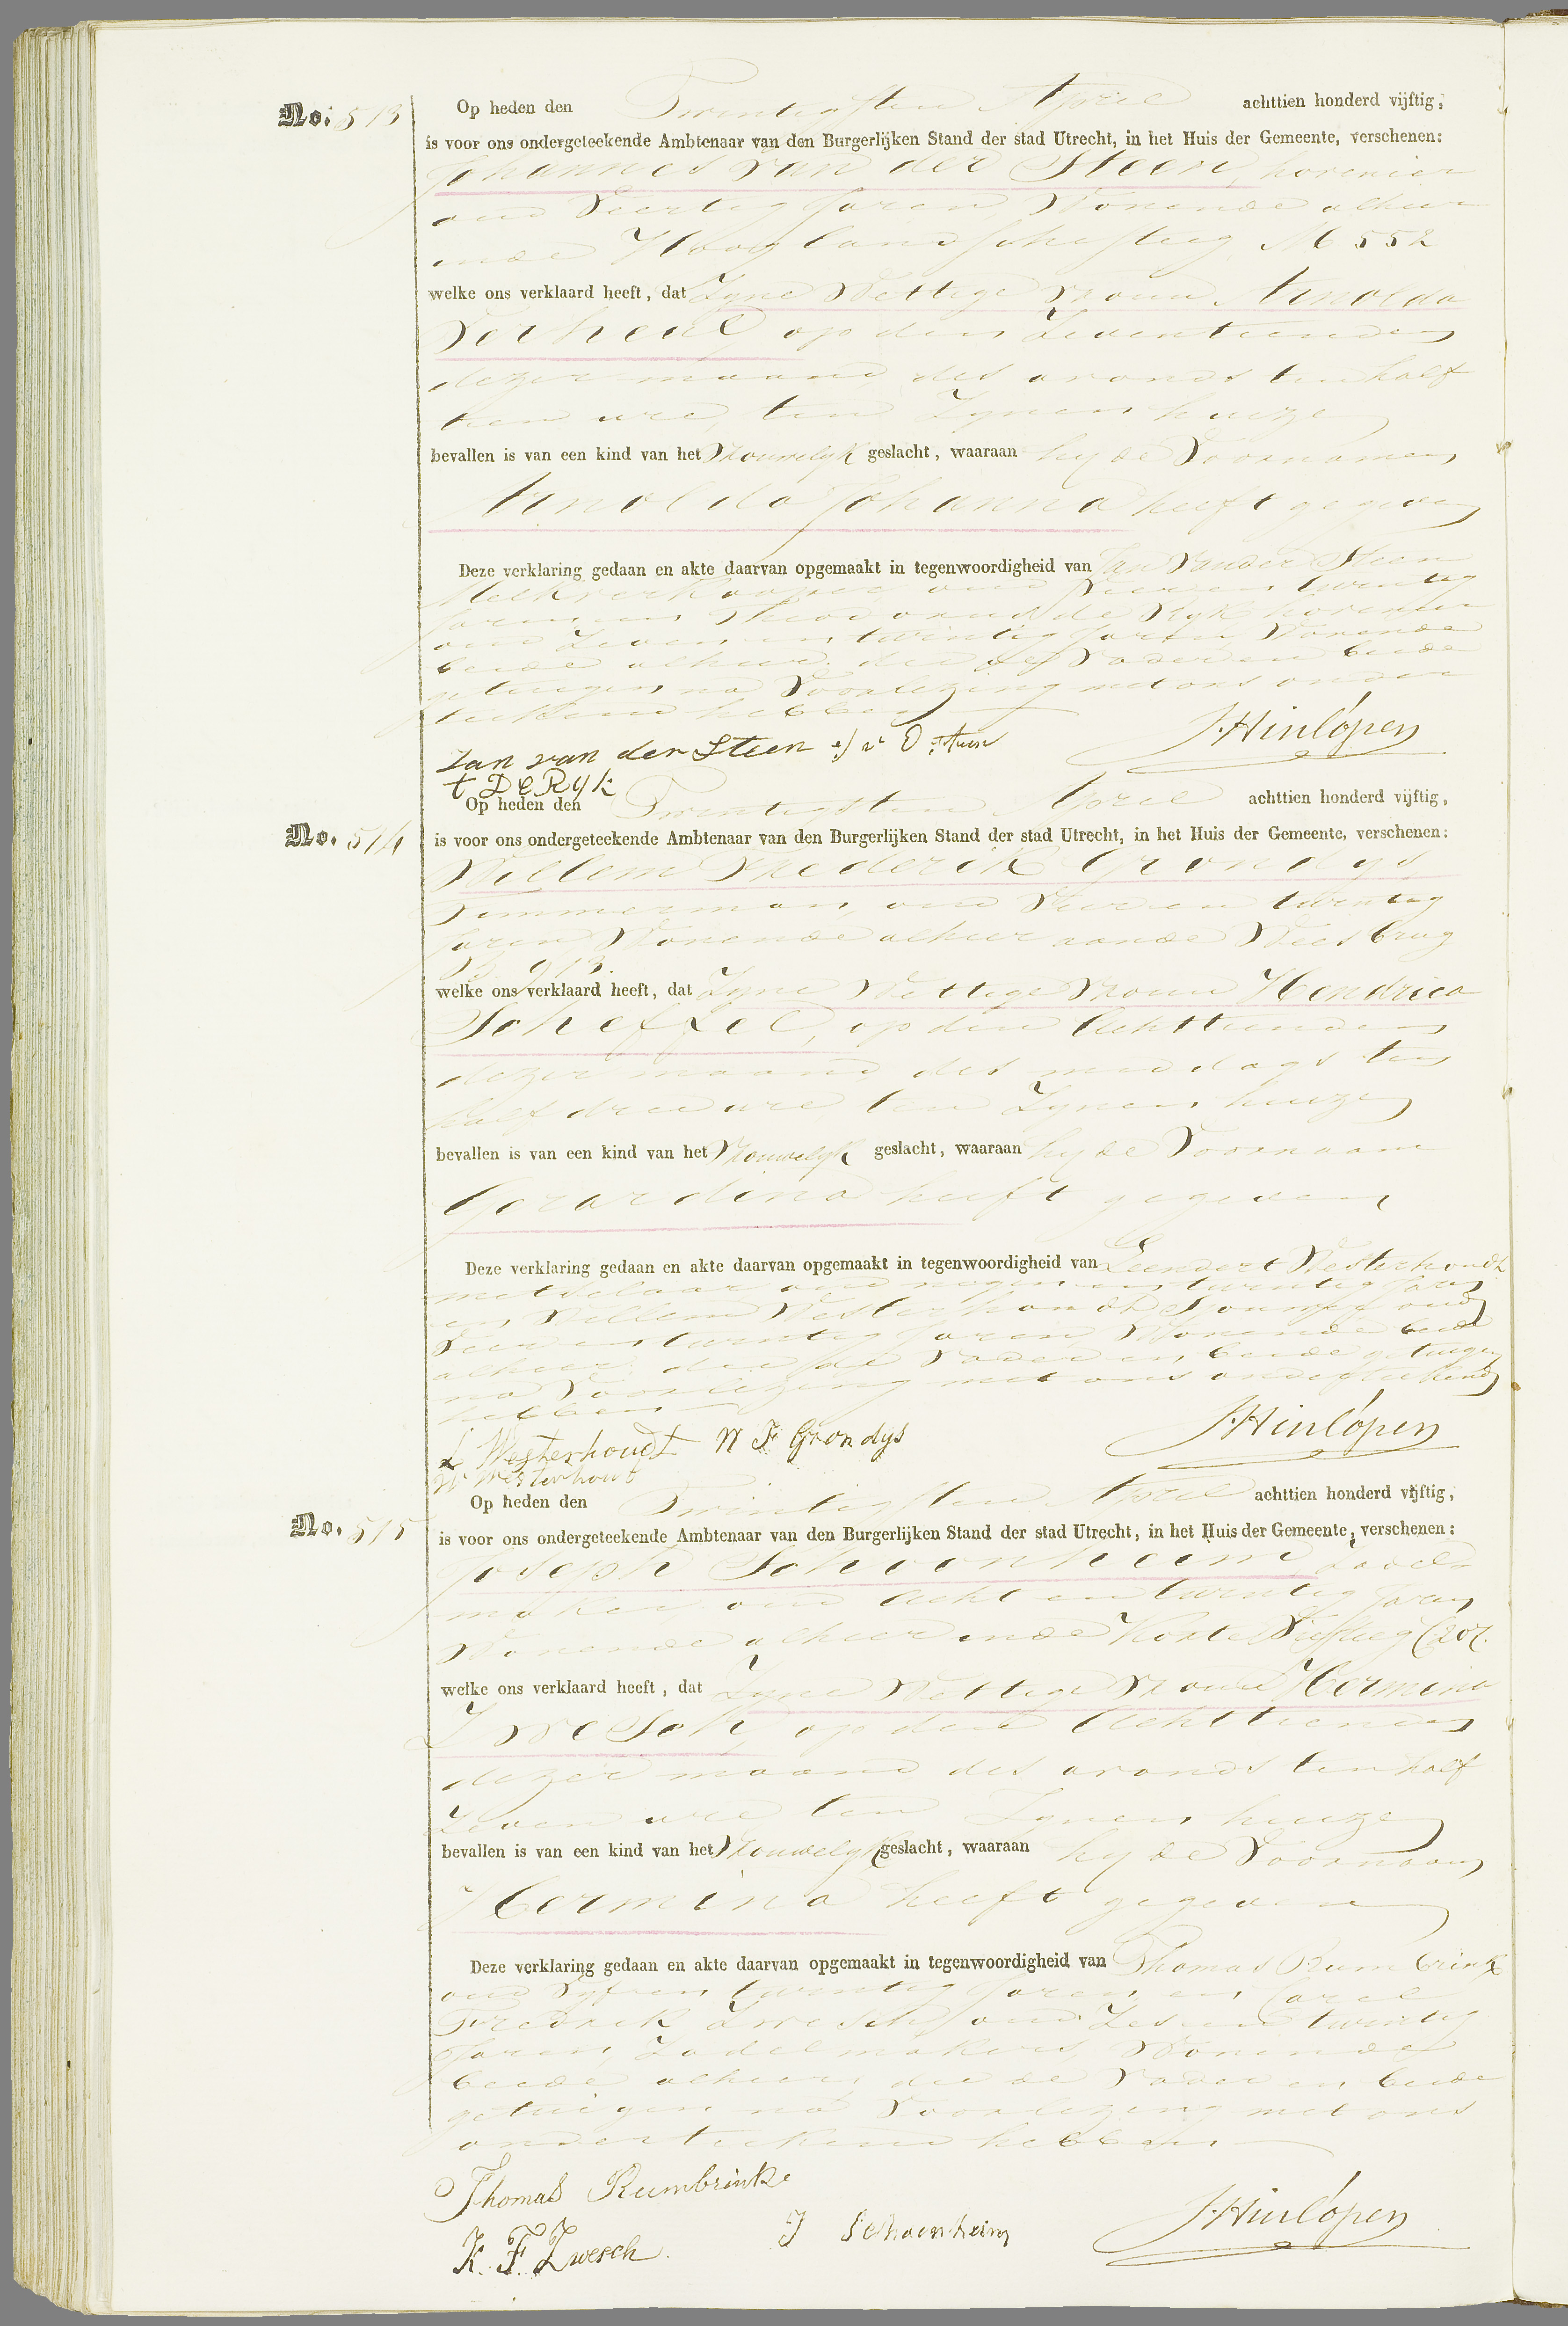 No. 513
Op heden den Twintigsten April achttien honderd vijftig,
is voor ons ondergeteekende Ambtenaar van den Burgerlijken Stand der stad Utrecht, in het Huis der Gemeente, verschenen:
Johannes van der Steen, hovenier
oud Veertig Jaren, Wonende alhier
in de Hooglandsche steeg M 552
welke ons verklaard heeft, dat Zyne Wettige Vrouw Arnolda
Verheul op den Zeventienden
dezer maand des avonds ten half
tien ure, ten Zynen huize
bevallen is van een kind van het Vrouwelyk geslacht, waaraan hy de Voornamen
Arnolda Johanna heeft gegeven
Deze verklaring gedaan en akte daarvan opgemaakt in tegenwoordigheid van Jan van der Steen
Melkverkooper oud Vier en twintig
Jaren en de Ryk hovenier
oud Zeven en twintig Jaren Wonende
beide alhier die de Vader en beide
getuigen na Voorlezing met ons onder
teekend hebben
Jan van der Steen J v D Steen J. Hinlópen
t De Ryk
No. 514
Op heden den Twintigsten April achttien honderd vijftig,
is voor ons ondergeteekende Ambtenaar van den Burgerlijken Stand der stad Utrecht, in het Huis der Gemeente, verschenen:
Willem Frederik Grondys
Timmerman, oud Vier en twintig
Jaren Wonende alhier aan de Weesbrug
B 913.
welke ons verklaard heeft, dat Zyne Wettige Vrouw Hendrica
Scheffel, op den Achttienden
dezer maand des middags ten
half drie ure ten Zynen huize
bevallen is van een kind van het Vrouwelyk geslacht, waaraan hy de Voornaam
Gerardina heeft gegeven
Deze verklaring gedaan en akte daarvan opgemaakt in tegenwoordigheid van Leendert Westerhoudt
metselaar oud negen en twintig Jaren
en Willem Westerhoudt oud
Vier en twintig Jaren Wonende beide
alhier die de Vader en beide getuigen
na Voorlezing met ons onderteekend
hebben
L Westerhoudt W F Grondys J. Hinlópen
W Westerhout
No. 515
Op heden den Twintigsten April achttien honderd vijftig,
is voor ons ondergeteekende Ambtenaar van den Burgerlijken Stand der stad Utrecht, in het Huis der Gemeente, verschenen:
Joseph Schoonheim, zadel
maker oud Acht en twintig Jaren
Wonende alhier in de Korte Viesteeg C 207.
welke ons verklaard heeft, dat Zyne Wettige Vrouw Hermina
Zwesch, op den Achttienden
dezer maand des avonds ten half
Zeven ure, ten Zynen huize
bevallen is van een kind van het Vrouwelyk geslacht, waaraan hy de Voornaam
Hermina heeft gegeven
Deze verklaring gedaan en akte daarvan opgemaakt in tegenwoordigheid van Thomas Rumbrink
oud Vyf en twintig Jaren en Carel
Fredrik Zwesch, oud Zes en twintig
Jaren, Zadelmakers, Wonende
beide alhier, die de Vader en beide
getuigen na Voorlezing met ons
onderteekend hebben
Thomas Rumbrink J. Hinlópen
K. F. Zwesch. J Schoonheim